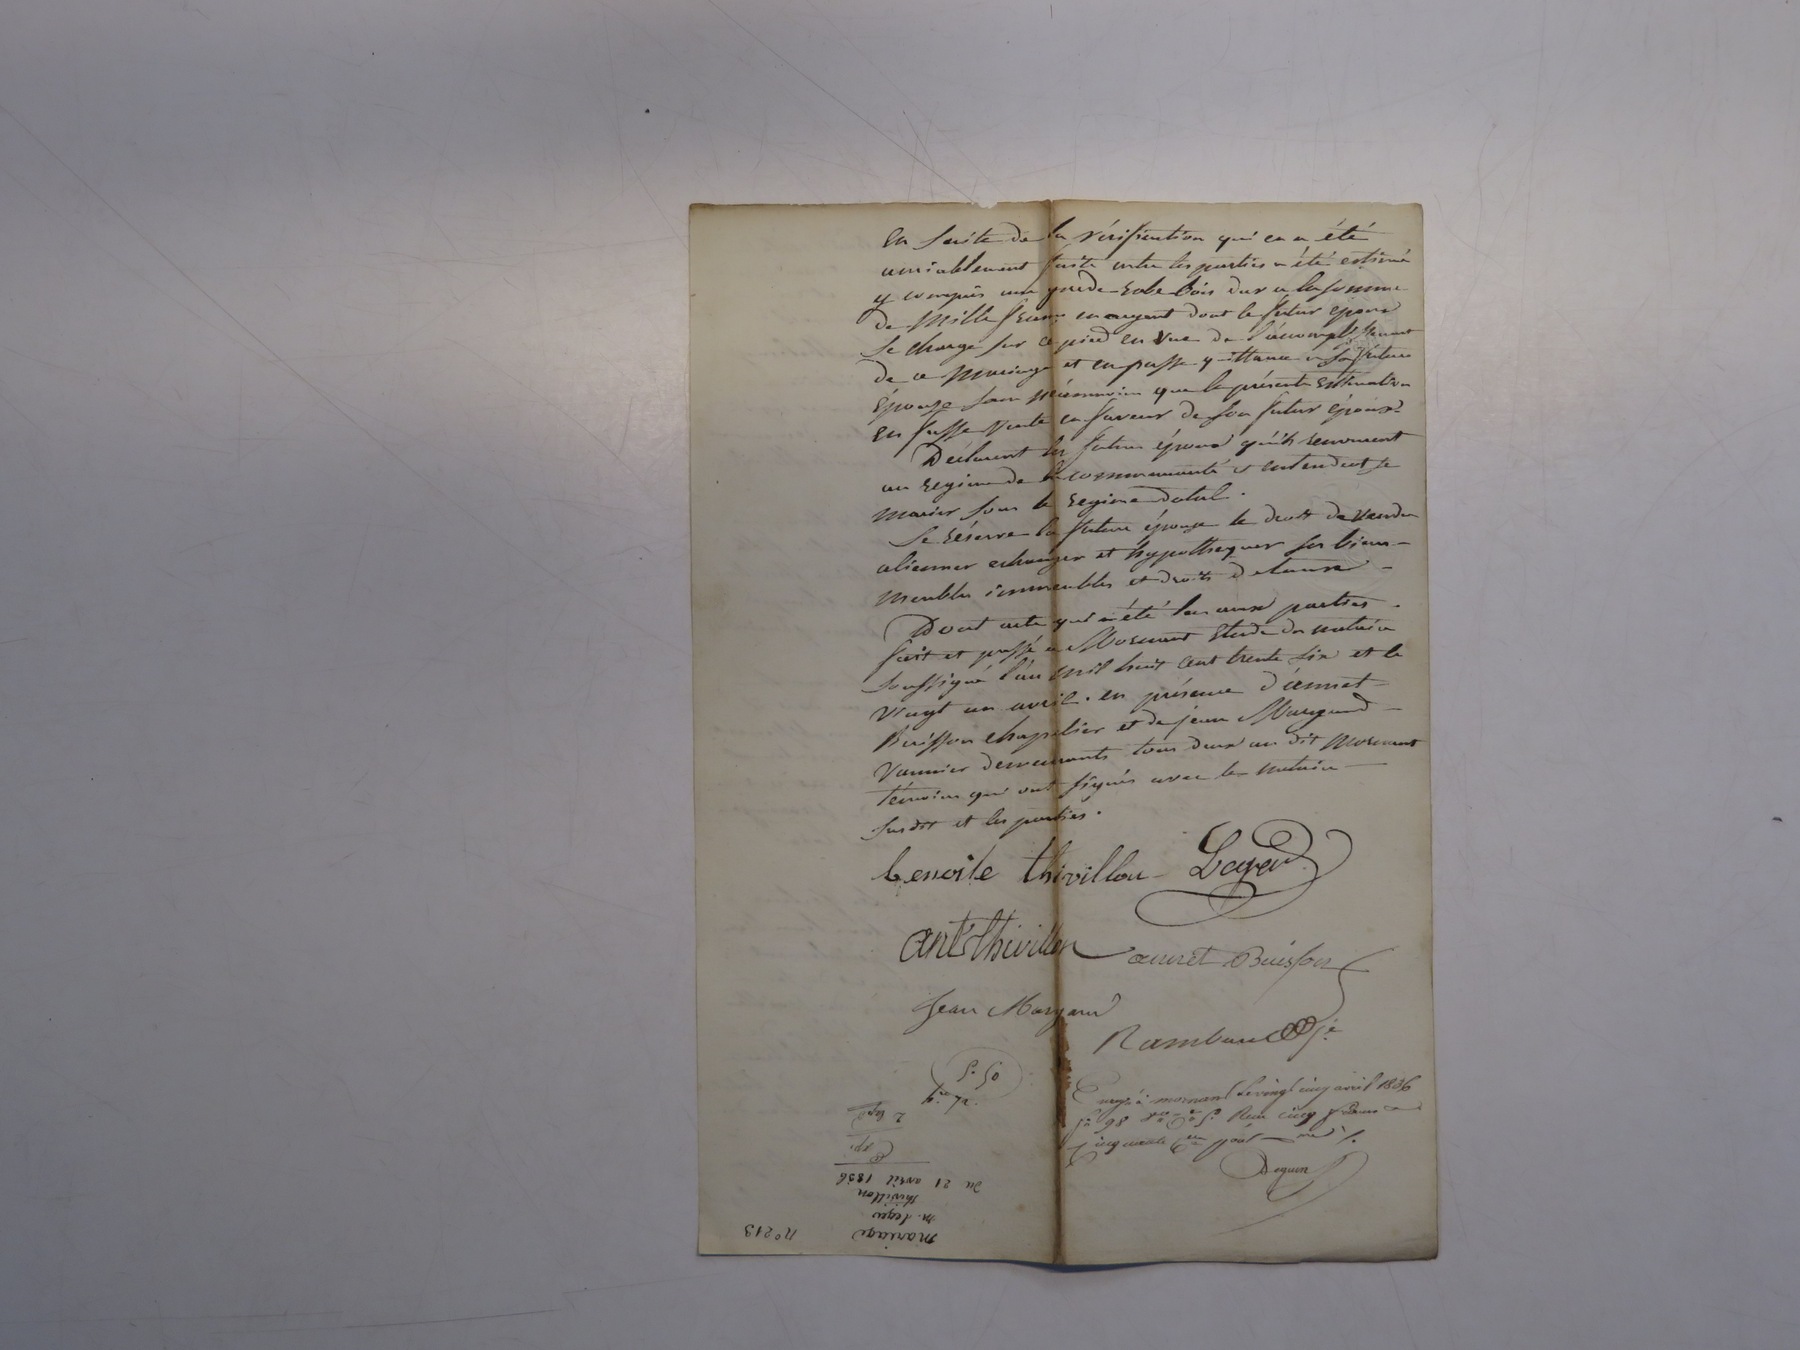 En suite de la vérification qui en a été
amiablement faite entre les parties a été estimé
y compris une garde-robe bois dur a la somme
de Mille francs en argent dont le futur époux
se charge sur ce pied en vue de l'accomplissement
de ce Mariage et en passe quittance a sa future
épouse sans néanmoins que la présente estimation
en fasse vente en faveur de son futur époux.
Déclarent les futurs époux qu'ils renoncent
au regime de la communauté et entendent se
marier sous le regime dotal.
Se réserve la future épouse le droit de vendre
aliener echanger et hypothequer ses biens
meubles immeubles et droits
Dont acte qui a été lu aux parties
fait et passé a Mornant Etude du notaire
soussigné l'an mil huit cent trente six et le
vingt un avril. en présence d'annet
Buisson chapelier et de jean Margand
Vannier demeurants tous deux au dit Mornant
témoins qui ont signés avec le notaire
susdit et les parties.
benoite thivillon Leger
ant thivillon annet Buisson
Jean Margand
Rambaud
5.50
Enregé à mornant le vingt cinq avril 1836
f° 98 Reçu cinq francs
cinquante
Deguin
n° 213
mariage
m. Leger
thivillon
du 21 avril 1836
Exp.